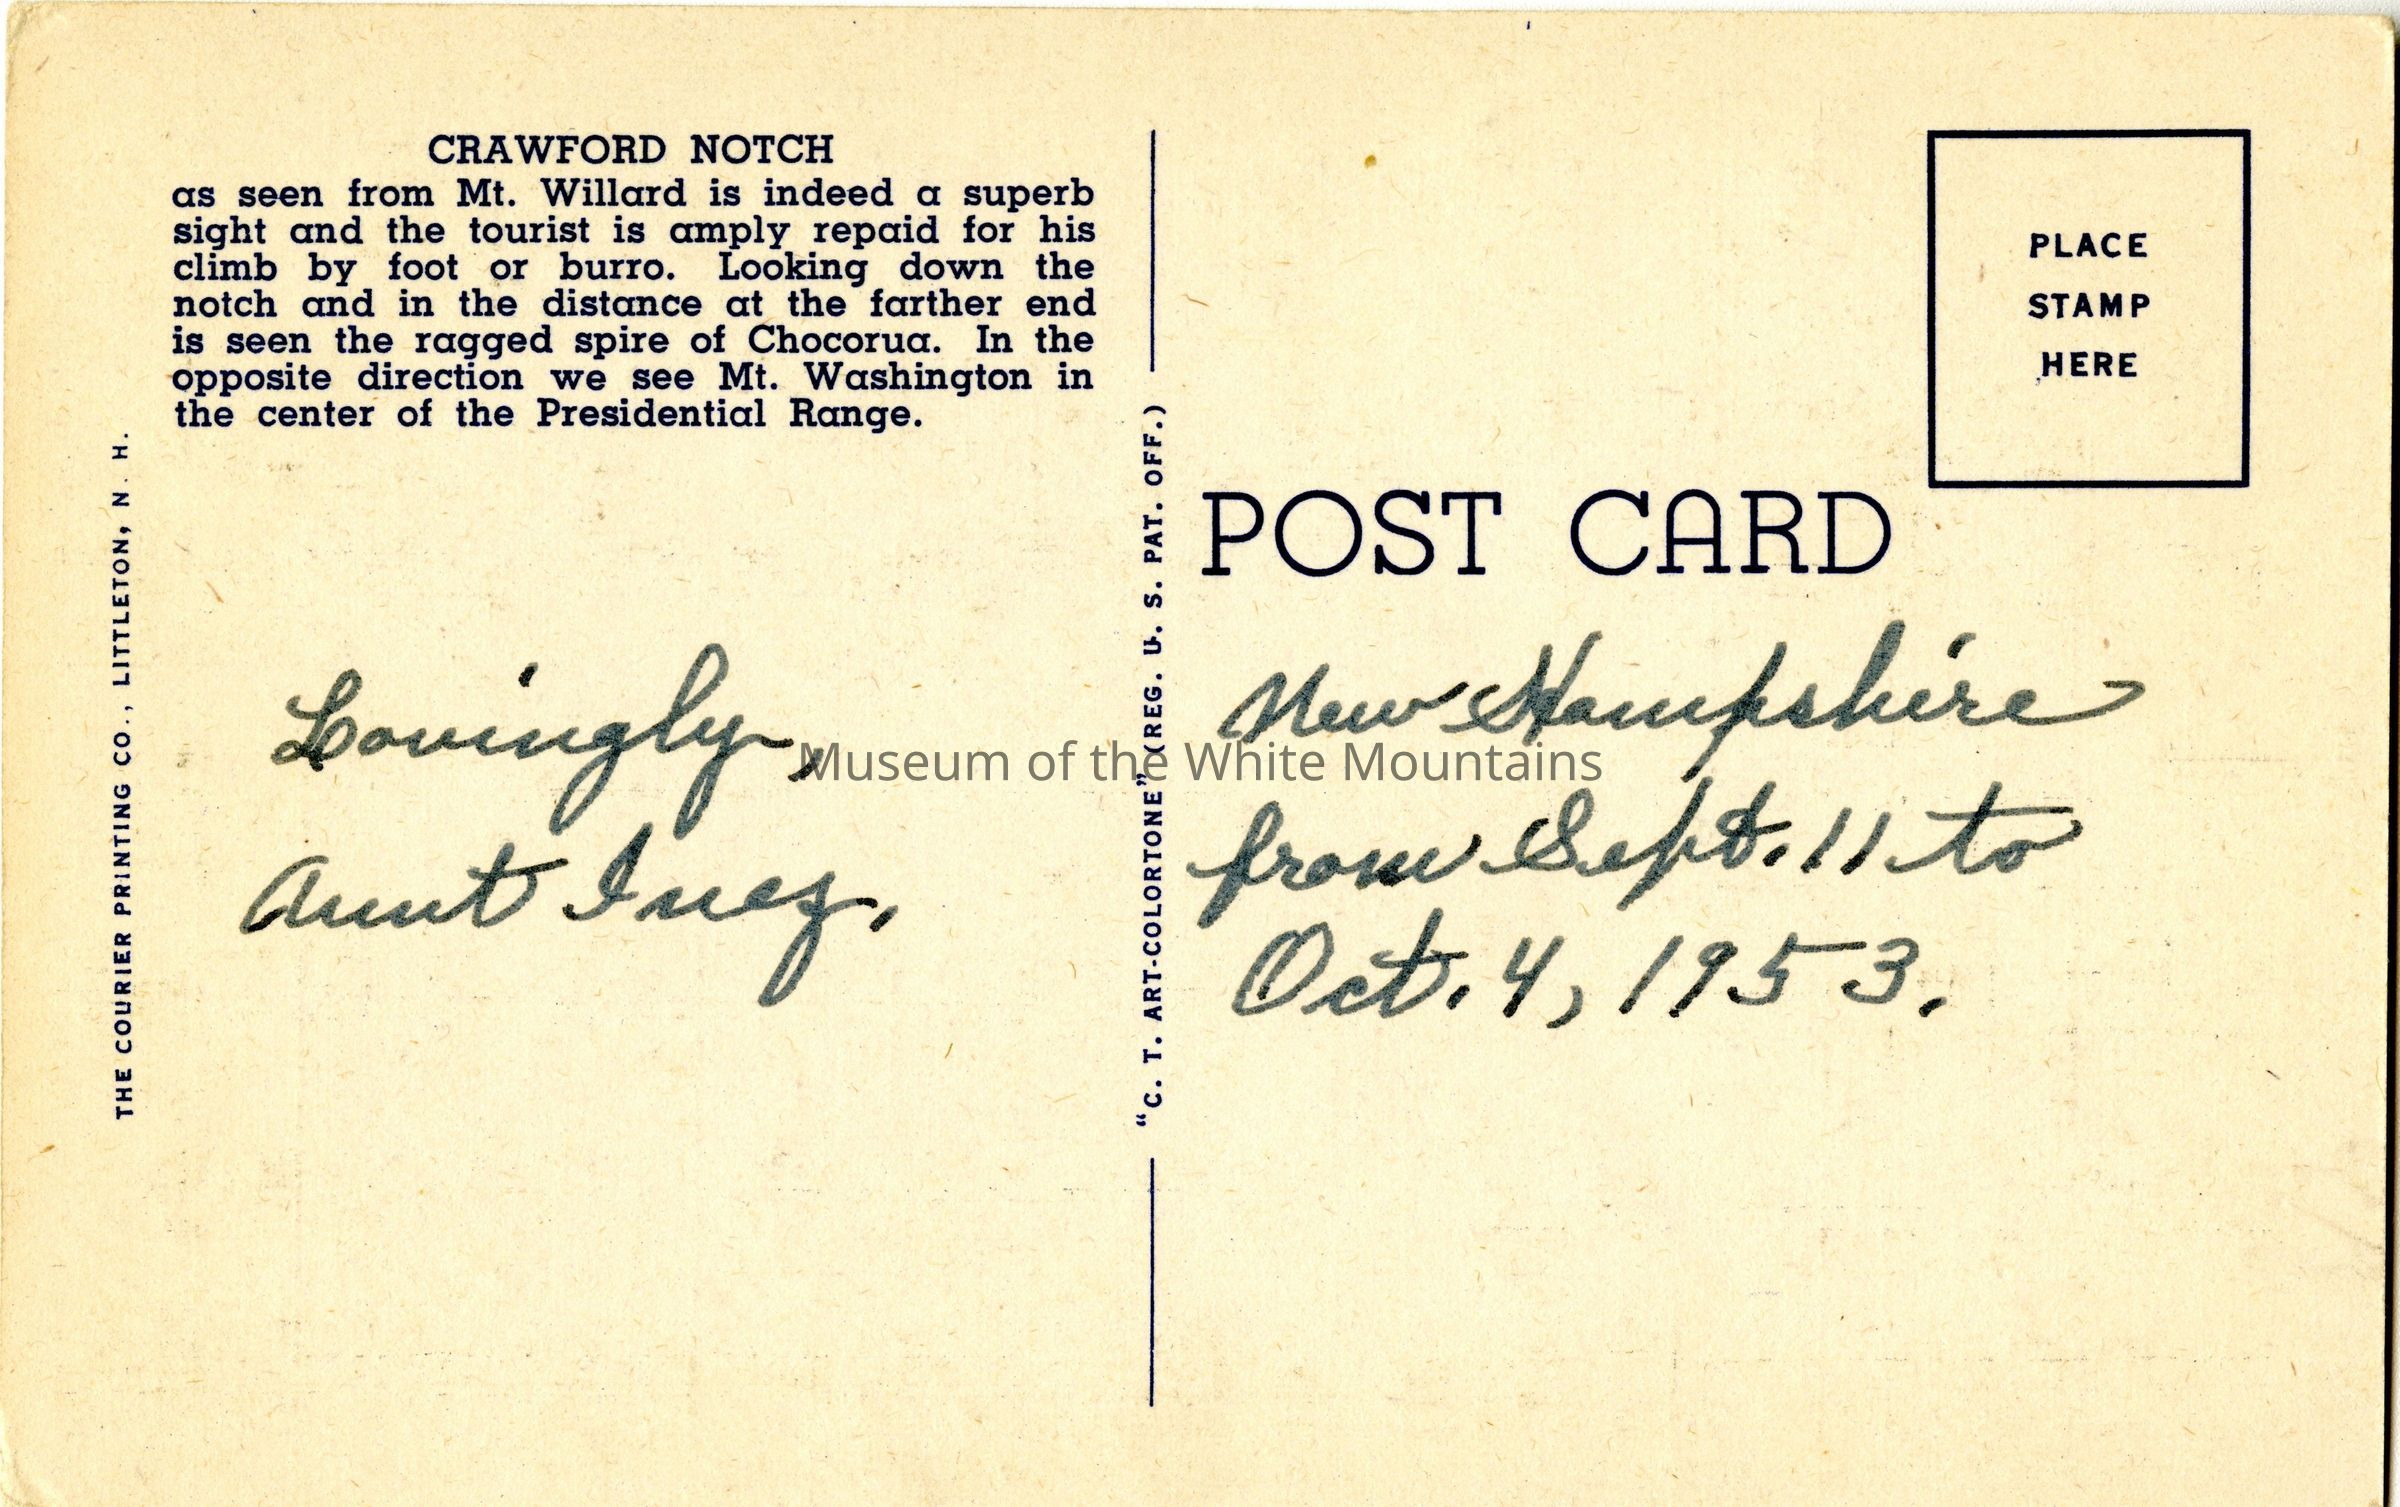 CRAWFORD NOTCH
as seen from Mt. Willard is indeed a superb
sight and the tourist is amply repaid for his
climb by foot or burro. Looking down the
notch and in the distance at the farther end
is seen the ragged spire of Chocorua. In the
opposite direction we see Mt. Washington in
the center of the Presidential Range.
THE COURIER PRINTING CO., LITTLETON, N. H.
Lovingly,
Aunt Inez.
"C. T. ART-COLORTONE" (REG. U. S. PAT. OFF.)
PLACE
STAMP
HERE
POST CARD
New Hampshire
from Sept. 11 to
Oct. 4, 1953.
Museum of the White Mountains